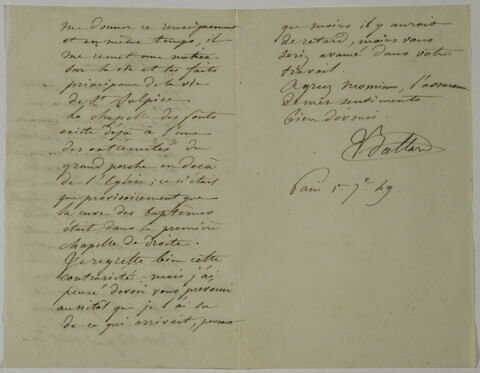 me donner ce renseignement
et en même temps, il
me remet une notice
sur la vie et les faits
principaux de la vie
de St Sulpice
La chapelle des fonts
existe déjà à l'une
des extrémités du
grand porche en deçà
de l'Eglise ; ce n'était
que provisoirement que
la cuve des baptêmes
était dans la première
chapelle de droite.
Je regrette bien cette
contrariété, mais j'ai
pensé devoir vous prévenir
aussitôt que je l'ai su
de ce qui arrivait, pensant
que moins il y aurait
de retard, moins vous
seriez avancé dans votre
travail.
Agréez Monsieur, l'assurance
de mes sentiments
bien dévoués.
VBaltard
Paris 7e 49